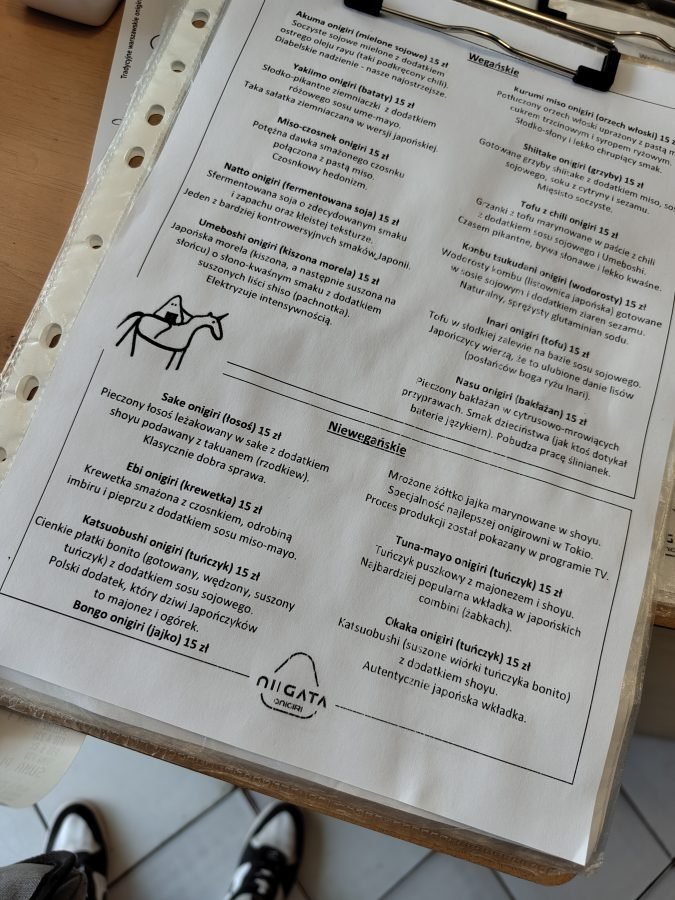 Tradycyjne warszawskie onigiri
Akuma onigiri (mielone sojowe) 15 zł
Soczyste sojowe mielone z dodatkiem
ostrego oleju rayu (taki podkręcony chili).
Diabelskie nadzienie - nasze najostrzejsze.
Yakiimo onigiri (bataty) 15 zł
Słodko-pikantne ziemniaczki z dodatkiem
różowego sosu ume-mayo.
Taka sałatka ziemniaczana w wersji japońskiej.
Miso-czosnek onigiri 15 zł
Potężna dawka smażonego czosnku
połączona z pastą miso.
Czosnkowy hedonizm.
Natto onigiri (fermentowana soja) 15 zł
Sfermentowana soja o zdecydowanym smaku
i zapachu oraz kleistej teksturze.
Jeden z bardziej kontrowersyjnych smaków Japonii.
Umeboshi onigiri (kiszona morela) 15 zł
Japońska morela (kiszona, a następnie suszona na
słońcu) o słono-kwaśnym smaku z dodatkiem
suszonych liści shiso (pachnotka).
Elektryzuje intensywnością.
Wegańskie
Kurumi miso onigiri (orzech włoski) 15 zł
Potłuczony orzech włoski uprażony z pastą
cukrem trzcinowym i syropem ryżowym.
Słodko-słony i lekko chrupiący smak.
Shiitake onigiri (grzyby) 15 zł
Gotowane grzyby shiitake z dodatkiem miso,
sojowego, soku z cytryny i sezamu.
Mięsisto soczyste.
Tofu z chili onigiri 15 zł
Grzanki z tofu marynowane w paście z chili
z dodatkiem sosu sojowego i Umeboshi.
Czasem pikantne, bywa słonawe i lekko kwaśne.
Konbu tsukudani onigiri (wodorosty) 15 zł
Wodorosty kombu (listownica japońska) gotowane
w sosie sojowym i dodatkiem ziaren sezamu.
Naturalny, sprężysty glutaminian sodu.
Inari onigiri (tofu) 15 zł
Tofu w słodkiej zalewie na bazie sosu sojowego.
Japończycy wierzą, że to ulubione danie lisów
(posłańców boga ryżu Inari).
Nasu onigiri (bakłażan) 15 zł
Pieczony bakłażan w cytrusowo-mrowiących
przyprawach. Smak dzieciństwa (jak ktoś dotykał
baterie językiem). Pobudza pracę ślinianek.
Niewegańskie
Sake onigiri (łosoś) 15 zł
Pieczony łosoś leżakowany w sake z dodatkiem
shoyu podawany z takuanem (rzodkiew).
Klasycznie dobra sprawa.
Ebi onigiri (krewetka) 15 zł
Krewetka smażona z czosnkiem, odrobiną
imbiru i pieprzu z dodatkiem sosu miso-mayo.
Katsuobushi onigiri (tuńczyk) 15 zł
Cienkie płatki bonito (gotowany, wędzony, suszony
tuńczyk) z dodatkiem sosu sojowego.
Polski dodatek, który dziwi Japończyków
to majonez i ogórek.
Bongo onigiri (jajko) 15 zł
Mrożone żółtko jajka marynowane w shoyu.
Specjalność najlepszej onigirowni w Tokio.
Proces produkcji został pokazany w programie TV.
Tuna-mayo onigiri (tuńczyk) 15 zł
Tuńczyk puszkowy z majonezem i shoyu.
Najbardziej popularna wkładka w japońskich
combini (żabkach).
Okaka onigiri (tuńczyk) 15 zł
Katsuobushi (suszone wiórki tuńczyka bonito)
z dodatkiem shoyu.
Autentycznie japońska wkładka.
NIIGATA
ONIGIRI